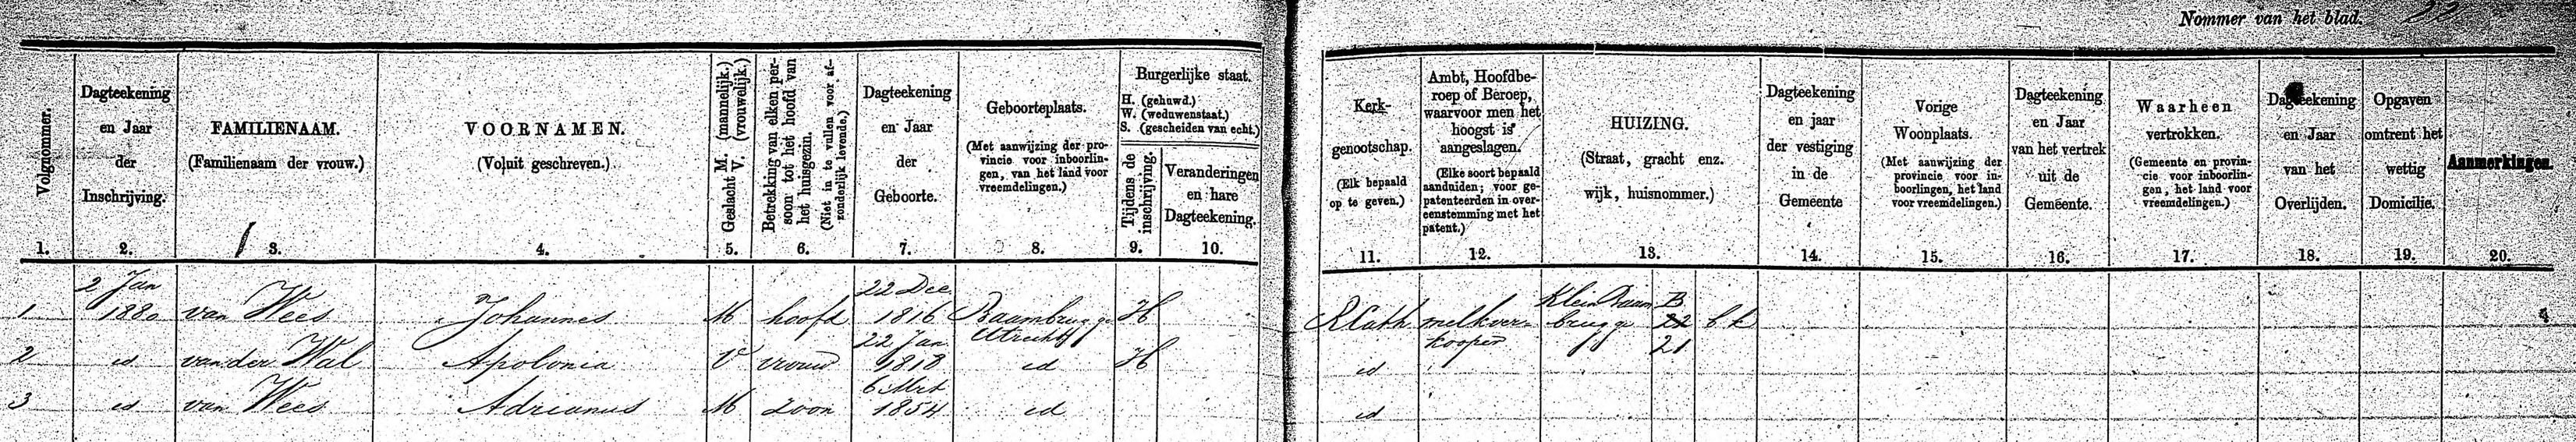 Nommer van het blad. 22
Volgnommer.
1.
Dagteekening
en Jaar
der
Inschrijving.
2.
FAMILIENAAM.
(Familienaam der vrouw.)
3.
VOORNAMEN.
(Voluit geschreven.)
4.
Geslacht M. (mannelijk.)
V. (vrouwelijk.)
5.
Betrekking van elken per-
soon tot het hoofd van
het huisgezin.
(Niet in te vullen voor af-
zonderlijk levende.)
6.
Dagteekening
en Jaar
der
Geboorte.
7.
Geboorteplaats.
(Met aanwijzing der pro-
vincie voor inboorlin-
gen, van het land voor
vreemdelingen.)
8.
Burgerlijke staat.
H. (gehuwd.)
W. (weduwenstaat.)
S. (gescheiden van echt.)
Tijdens de
inschrijving.
9.
Veranderingen
en hare
Dagteekening.
10.
Kerk-
genootschap.
(Elk bepaald
op te geven.)
11.
Ambt, Hoofdbe-
roep of Beroep,
waarvoor men het
hoogst is
aangeslagen.
(Elke soort bepaald
aanduiden; voor ge-
patenteerden in over-
eenstemming met het
patent.)
12.
HUIZING.
(Straat, gracht enz.
wijk, huisnommer.)
13.
Dagteekening
en jaar
der vestiging
in de
Gemeente
14.
Vorige
Woonplaats.
(Met aanwijzing der
provincie voor in-
boorlingen, het land
voor vreemdelingen.)
15.
Dagteekening
en Jaar
van het vertrek
uit de
Gemeente.
16.
Waarheen
vertrokken.
(Gemeente en provin-
cie voor inboorlin-
gen, het land voor
vreemdelingen.)
17.
Dagteekening
en Jaar
van het
Overlijden.
18.
Opgaven
omtrent het
wettig
Domicilie.
19.
Aanmerkingen.
20.
2 Jan 22 Dec Klein Baam B
1 1880 van Wees Johannes M hoofd 1816 Baambrugge H RCath melkver= brugge 22 bk 4
22 Jan Utrecht kooper 21
2 id van der Wal Apolonia V vrouw 1818 id H id
6 Mrt
3 id van Wees Adrianus M zoon 1854 id id